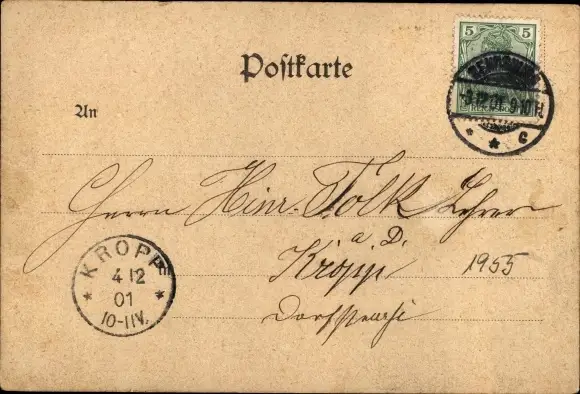 5 5
Postkarte
-3.12.01. 9-10N.
* * c
An
Herrn Hinr. Folk Lehrer
a. D.
Kropp 1955
KROPP
4 12
01
* *
10-11V.